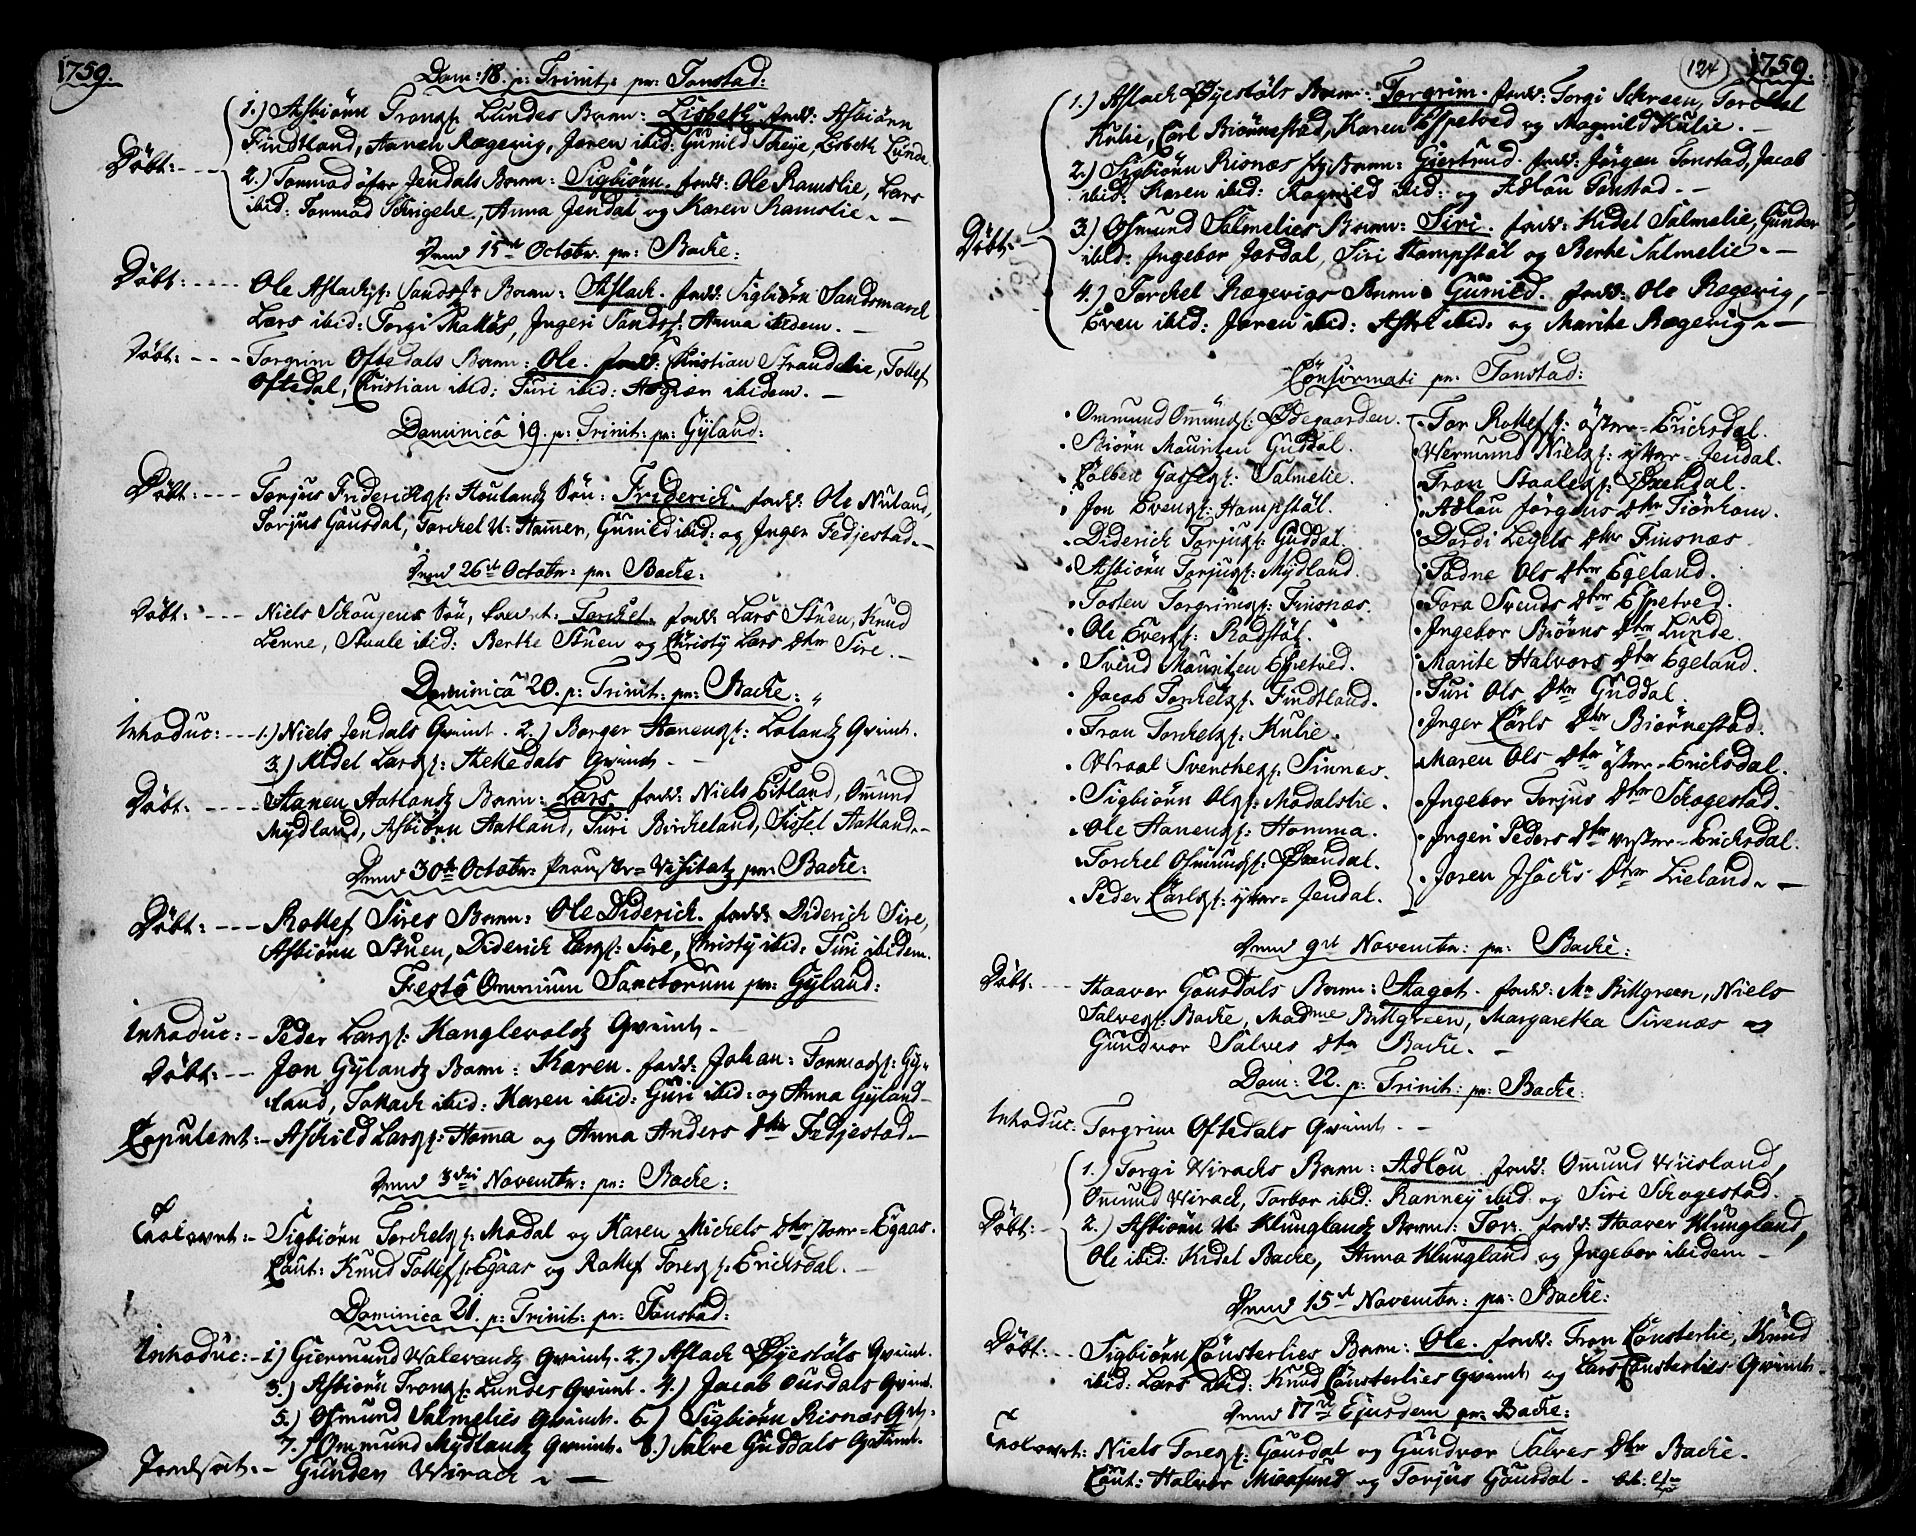 1759.
Dom: 18. p: Trinit: pr: Tonstad:
1.) Asbiörn Tronss: Lundes Barn: Lisbeth. fadd: Asbiörn
Döbt: Findtland, Hanen Rægevig, Jøren ibid: Gunild Scheÿe, Lisbeth Lunde.
2.) Tonmod öfer Jendals Barn: Sigbiörn. fadd: Ole Ramslie, Lars
ibid: Tonmod Schigelie, Anna Jendal og Karen Ramslie.
Dend 15de Octobr. pr: Backe:
Döbt: Ole Aslachs: Barn: Aslack. fadd: Sigbiörn Sandsmarck
Lars ibid: Torgi, Jngeri Anna ibidem.
Döbt: Torgrim Oftedals Barn: Ole. fadd: Christian Strandelie, Tollef
Oftedal, Christian ibid: Turi ibid: ibidem.
Dominica 19. p: Trinit: pr: Gÿland:
Döbt: Torjus Friderichs: Houlands Sön: Friderich. fadd: Ole Nuland,
Torjus Gausdal, Torchel N: Hammer, Gunild ibid: og Jnger Fedjestad.
Dend 26de Octobr: pr: Backe:
Döbt: Niels Sön, Torchel. fadd: Lars Stuen, Knud
Lenne, Staale ibid: Berthe Stuen og Christÿ Lars Dtter Sire.
Dominica 20. p: Trinit: pr: Backe:
Introduc: 1.) Niels Jendals Qvinde. 2.) Borger Hanens: Lolands Qvinde.
3.) Kidel Larss: Qvinde
Döbt: Hanen Aatlands Barn: Lars. fadd: Niels Eitland, Omund
Mÿdland, Asbiörn Aatland, Turi Bircheland, Sissel Aatland.
Dend 30te Octobr: Proustee-Visitatz pr: Backe:
Döbt: Rollef Sires Barn: Ole Diderich. fadd: Diderich Sire,
Asbiörn Stuen, Diderich Larss: Sire, Christÿ ibid: Turi ibidem.
Festo Omnium Sanctorum pr: Gÿland:
Introduc: Peder Larss: Kanglevolds Qvinde
Döbt: Jon Gÿlands Barn: Karen. fadd: Johan: Tonmods: Gÿ-
land, Tollack ibid: Karen ibid: Guri ibid: og Anna Gÿland
Copuleert: Askild Larss: Homma og Anna Anders Dtter Fedjestad
Dend 3die Novembr: pr: Backe:
Trolovet: Sigbiörn Torchelss: Modal og Karen Michels Dtter Egaas.
Caut: Knud Tollefs: Egaas og Rollef Toress: Ericksdal.
Dominica 21. p: Trinit: pr: Tonstad:
Introduc: 1.) Giermund Walevands Qvinde. 2.) Aslach Øÿestöls Qvinde.
3.) Asbiörn Tronss: Lundes Qvinde. 4.) Jacob Ousdals Qvind.
5.) Osmund Salmelies Qvinde. 6.) Sigbiörn Risnæs Qv:
7.) Ommund Mÿdlands Qvinde. 8.) Salve Guddals Qvinde.
Jordsat: Gunden Wirach
124 1759.
1.) Aslach Øÿestöls Barn: Torgrim. fadd: Torgi Schreen, Torchel
Kulie, Carl Biörnestad, Karen Espetved og Magnild Kulie.
2.) Sigbiörn Risnæs Barn: Giertrud. fadd: Jörgen Tonstad, Jacob
ibid: Karen ibid: Ragnild ibid: og Adlau Tonstad.
Döbt: 3.) Osmund Salmelies Barn: Siri. fadd: Kidel Salmelie, Gunder
ibid: Jngebor Josdal, Siri Hompstöl og Berthe Salmelie.
4.) Torchel Rægevigs Barn: Gunild. fadd: Ole Rægevig,
Even ibid: Jøren ibid: ibid: og Marite Rægevig.
Confirmati pr: Tonstad:
Ommund Omunds: Ødegaarden.
Biörn Mauritzen Guddal.
Colben Salmelie.
Jon Evens: Hompstöl.
Diderich Torjuss: Guddal.
Asbiörn Torjuss: Mÿdland.
Tosten Torgrims: Finsnæs.
Ole Evers: Rödstöl.
Svend Mauritzen Espetved.
Jacob Torchels: Findtland.
Tron Torchels: Kulie.
Wraal Svenches: Sinnæs.
Sigbiörn Ols: Modalslie.
Ole Hanens: Homma.
Torchel Osmunds: Øxendal.
Peder Carls: ÿtter-Jendal.
Tor Rollefs: öster-Ericksdal.
Wermund Niels: ÿtter-Jendal.
Tron Staales: Øxendal.
Adlau Jörgens Dtter Tiörhom.
Dordi Legels Dtter Finsnæs
Tadne Ols Dtter Egeland.
Tora Svends Dtter Espetved.
Jngebor Biörns Dtter Lunde.
Marite Halvors Dtter Egeland.
Turi Ols Dtter Guddal.
Jnger Carls Dtter Biörnestad.
Maren Ols Dtter öster-Ericksdal.
Jngebor Torjus Dtter Schogestad.
Jngeri Peders Dtter vester-Ericksdal.
Joren Jsachs Dtter Lieland.
Dend 9de Novembr: pr: Backe:
Döbt: Haaver Gausdals Barn: Aaget. fadd: Mr Billgreen, Niels
Salves: Backe, Madme Billgreen, Margaretha Sirenæs og
Gundvor Salves Dtter Backe.
Dom: 22. p: Trinit: pr: Backe:
Introduc: Torgrim Oftedals Qvinde
1.) Torgi Wirachs Barn: Adlou. fadd: Omund Wiisland,
Omund Wirach, Torbor ibid: Ranneÿ ibid og Siri Schogestad.
Döbt: 2.) Asbiörn N: Klunglands Barn: Tor. fadd: Haaver Klungland,
Ole ibid: Kidel Backe, Anna Klungland og Jngebor ibidem
Dend 15de Novembr: pr: Backe:
Döbt: Sigbiörn Consterlies Barn: Ole. fadd: Tron Consterlie, Knud
ibid: Lars ibid: Knud Consterlies Qvinde og Lars Consterlies Qvinde
Dend 17de Ejusdem pr: Backe:
Trolovet: Niels Tores: Gausdal og Gundvor Salves Dtter Backe.
Caut: Halvor Moesund og Torjus Gausdal.